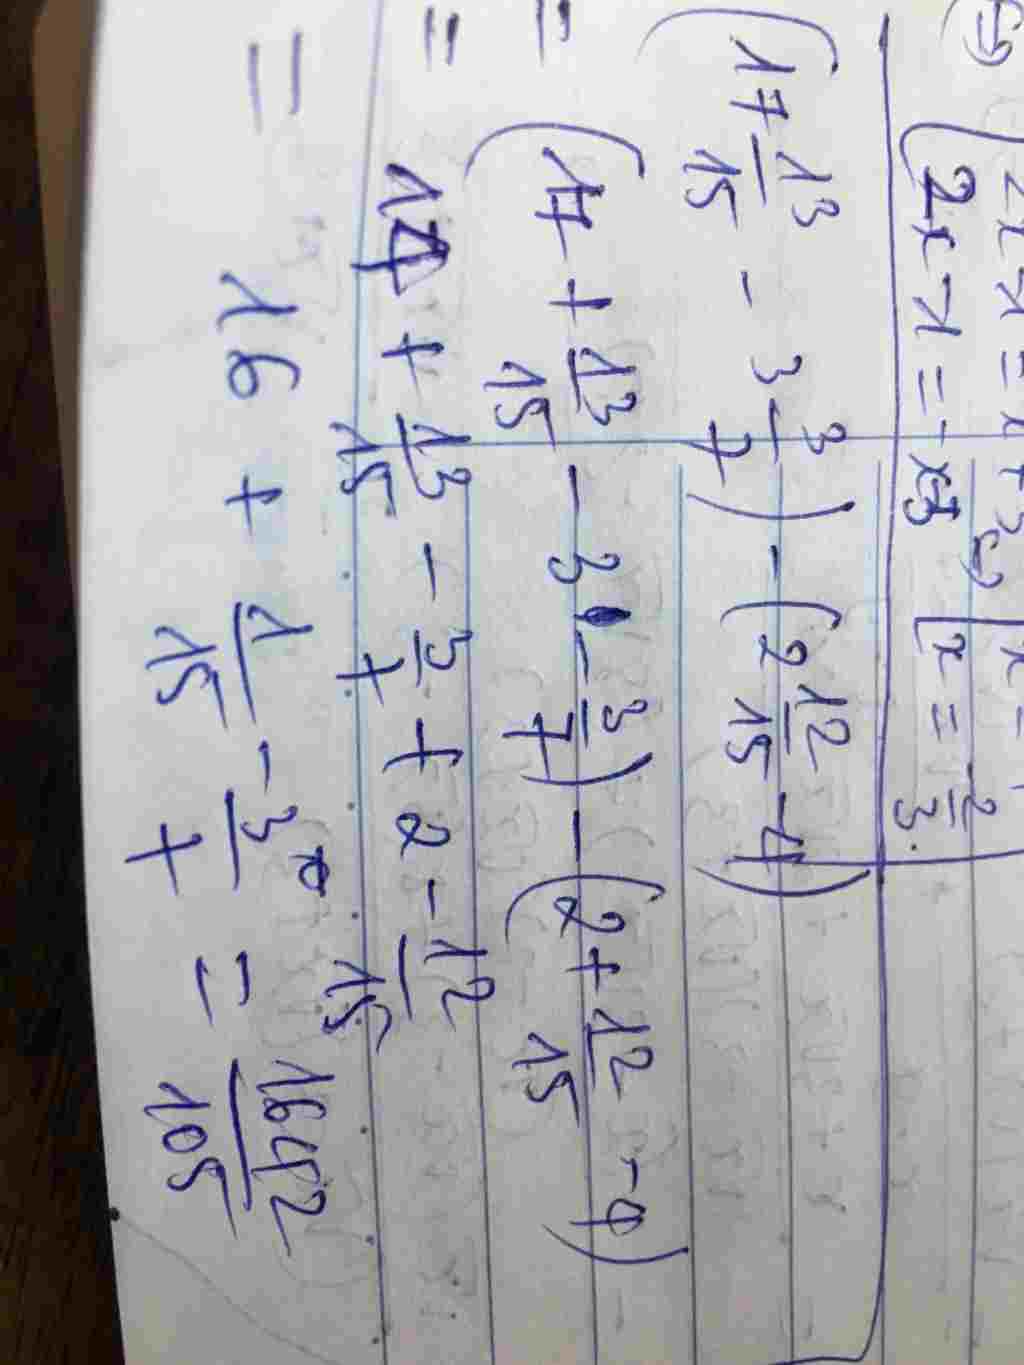 ⇔ [ 2x-1=x+3 ⇔ [ x=
2x-1=-x-3 x=-2/3.
(17 13/15 - 3 3/7) - (2 12/15 - 4)
= (17 + 13/15 - 3 - 3/7) - (2 + 12/15 - 4)
= 14 + 13/15 - 3/7 + 2 - 12/15
= 16 + 1/15 - 3/7 = 1642/105